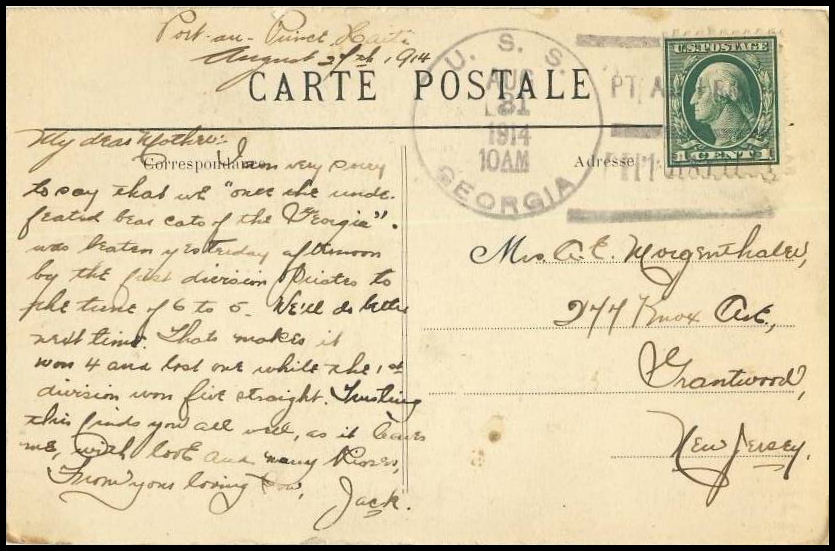 Port-au-Prince Haiti
August 27th, 1914
CARTE POSTALE
Correspondance
Adresse
U. S. S. GEORGIA
AUG
1914
10AM
U.S. POSTAGE
1 CENT 1
My dear Mother:
I am very sorry
to say that we "once the unde-
feated bear cats of the Georgia".
was beaten yesterday afternoon
by the first division Pirates to
the tune of 6 to 5. We'll do better
next time. Thats makes it
won 4 and lost one while the 1st
division won five straight. Trusting
this finds you all well, as it leaves
me, with love and many kisses,
From your loving son,
Jack.
Mrs. A. E. Morgenthaler,
244 Knox Ave,
Grantwood,
New Jersey.